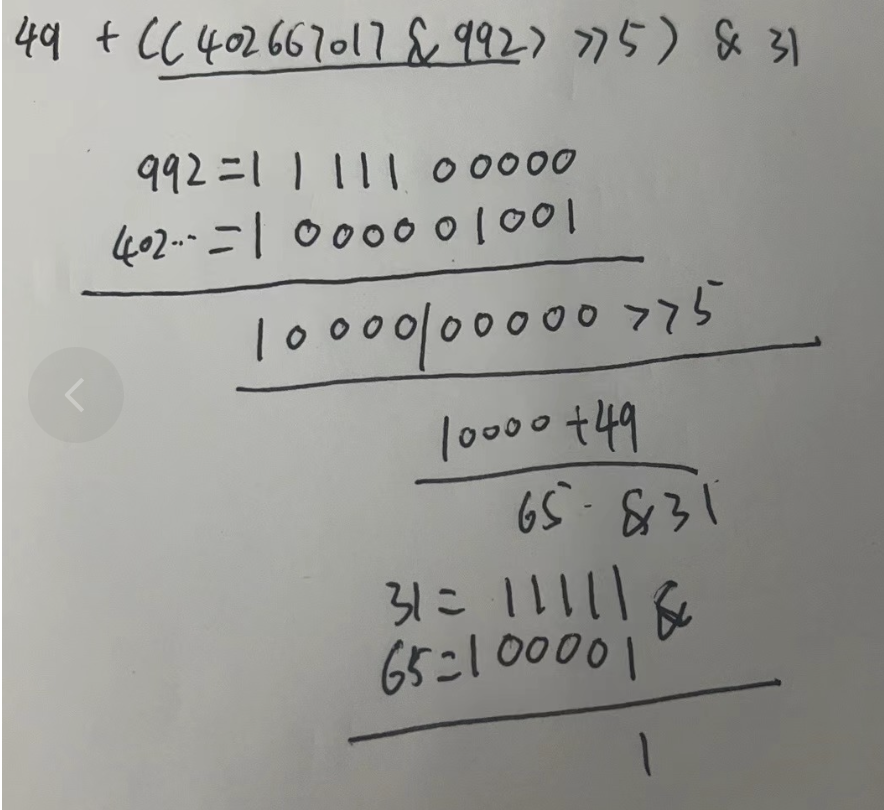 49 + ((402667017 & 992) >>5) & 31
992=1111100000
402...=1000001001
10000|00000 >>5
10000+49
65 - &31
31= 11111 &
65=100001
1